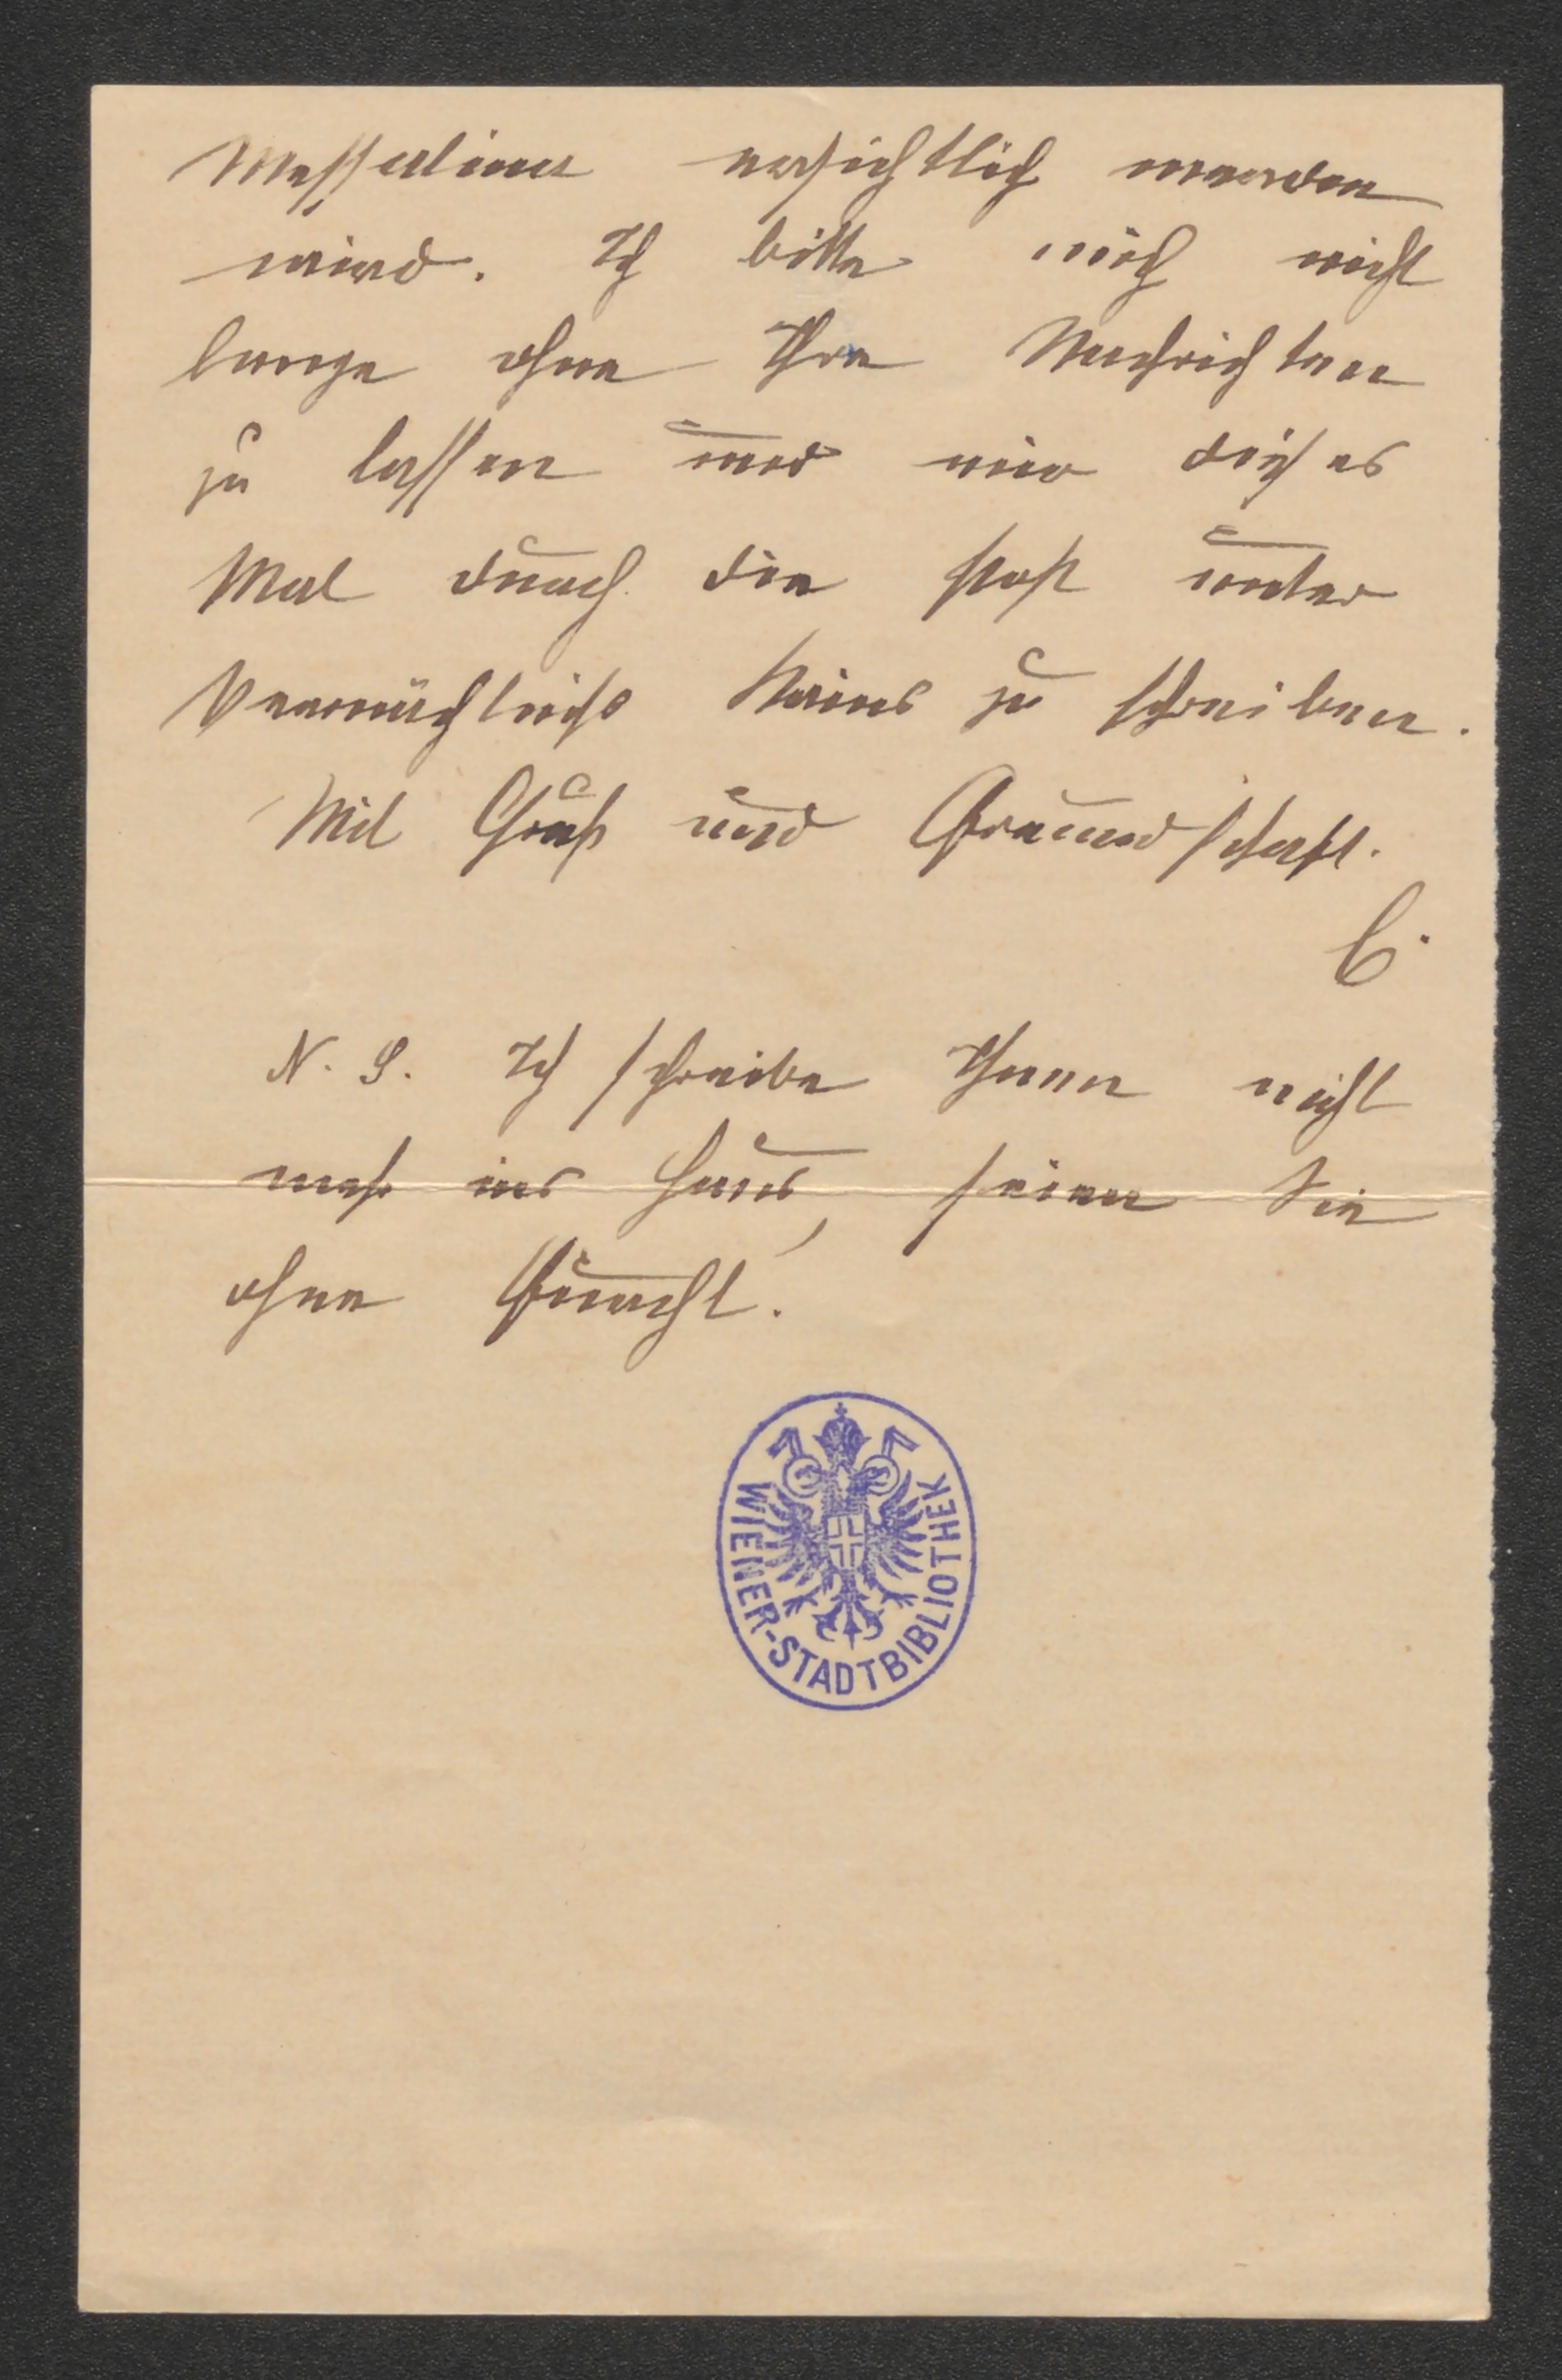 Messalina ersichtlich werden
wird. Ich bitte mich nicht
lange ohne Ihre Nachrichten
zu lassen und mir dieses
Mal durch die Post unter
Vermächtniß Kains zu schreiben.
Mit Gruß und Freundschaft.
C.
N. S. Ich schreibe Ihnen nicht
mehr ins Haus, seien Sie
ohne Furcht.
WIENER-STADTBIBLIOTHEK